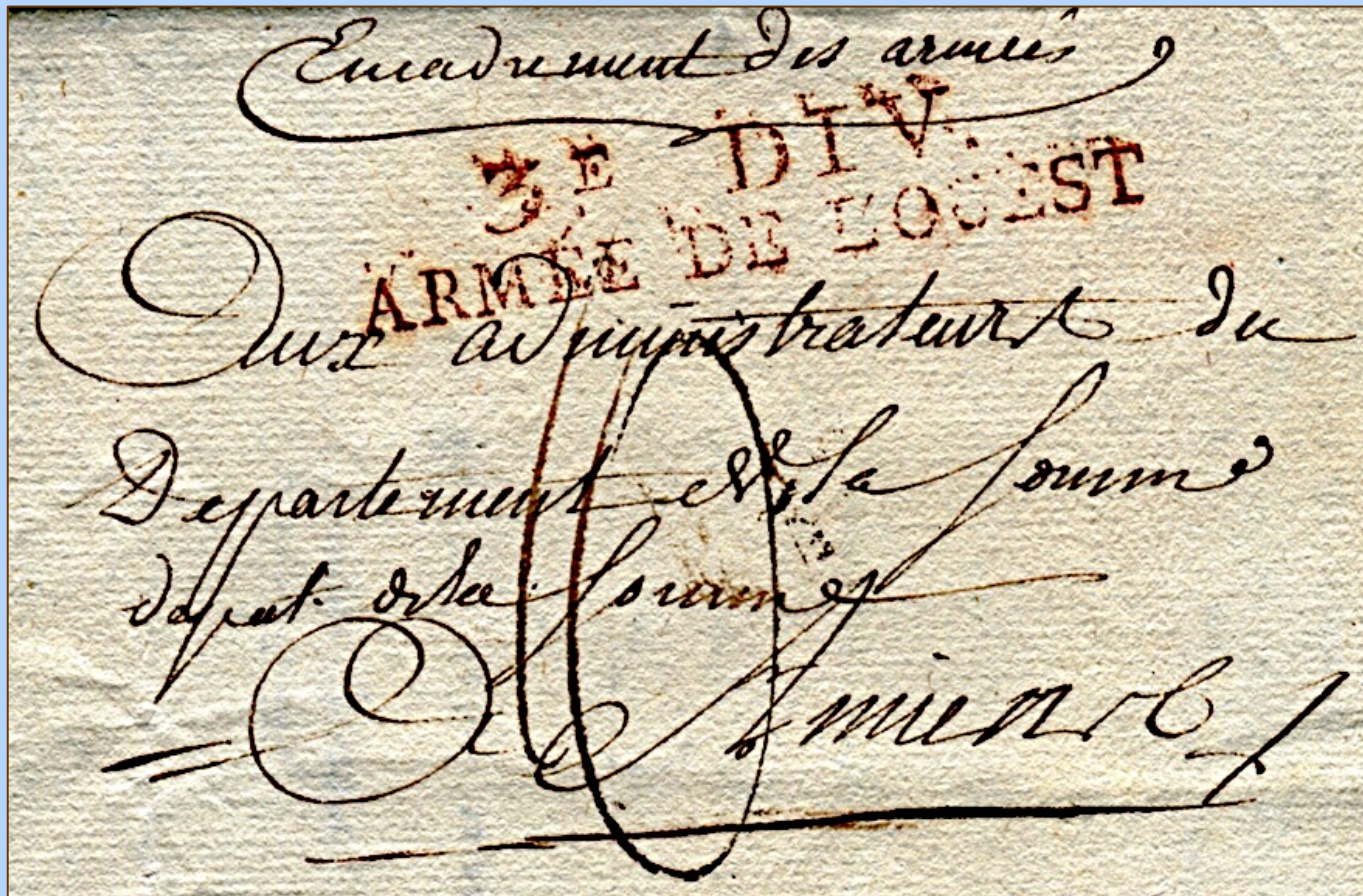 Encadrement des armées
3E DIV.
ARMÉE DE L'OUEST
Aux administrateurs du
Departement de la Somme
depat. de la Somme
A Amiens